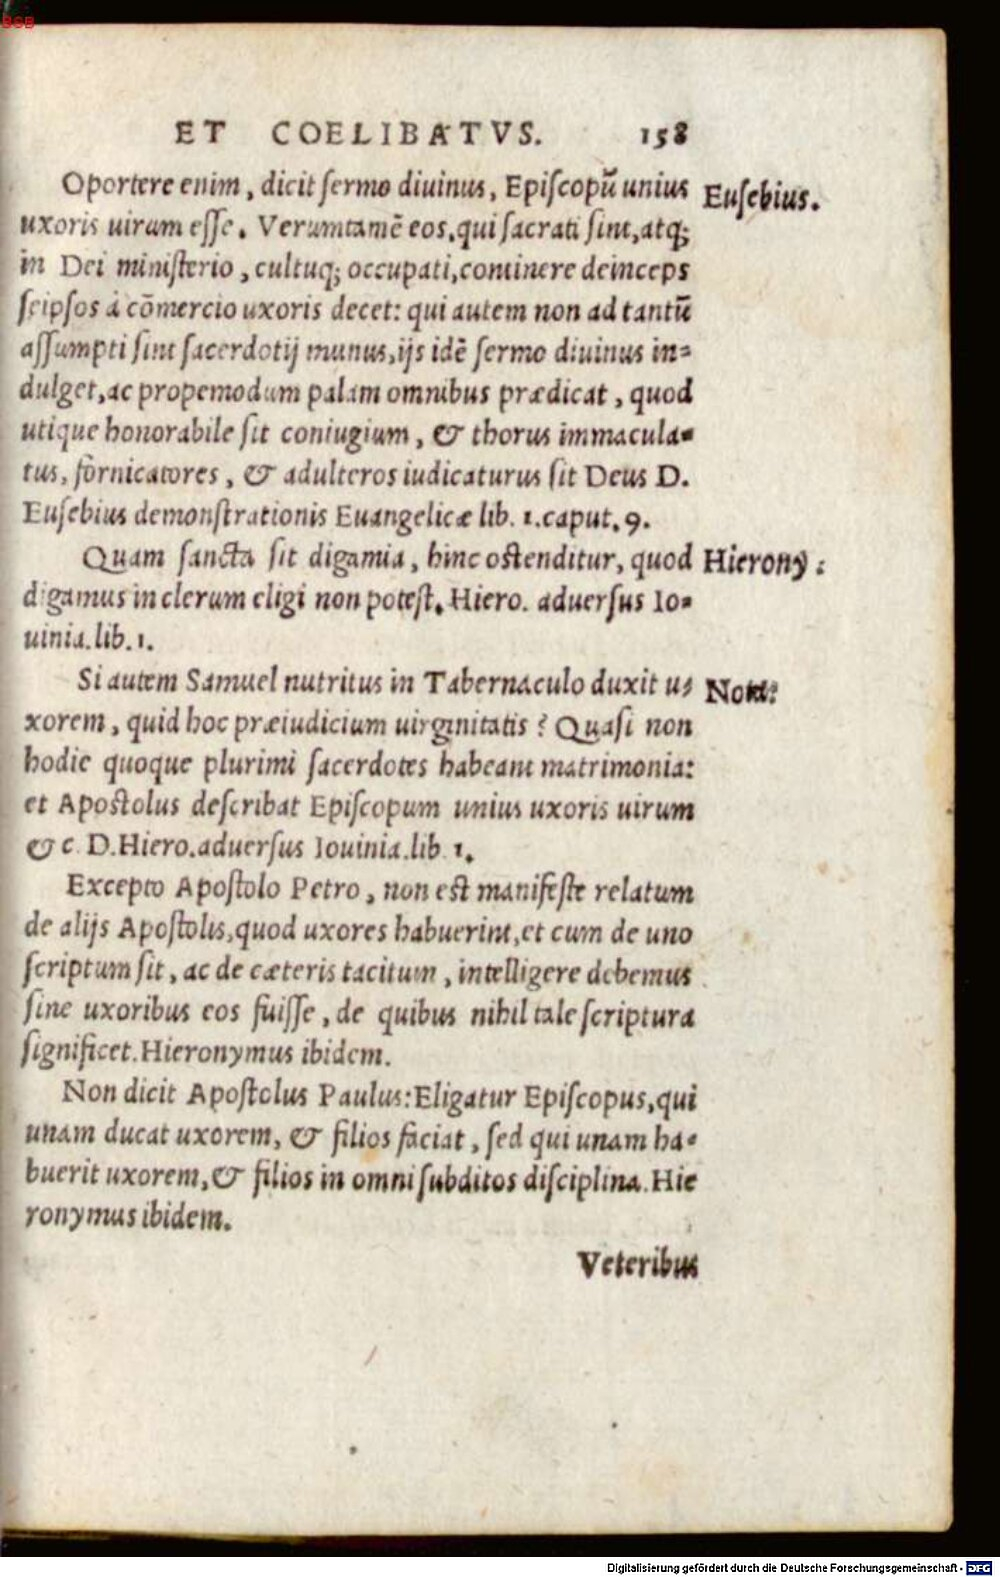 BSB
ET COELIBATVS. 158
Oportere enim, dicit sermo diuinus, Episcopũ unius
Eusebius.
uxoris uirum esse. Verumtamẽ eos, qui sacrati sint, atq;
in Dei ministerio, cultuq; occupati, continere deinceps
seipsos à cõmercio uxoris decet: qui autem non ad tantũ
assumpti sint sacerdotij munus, ijs idẽ sermo diuinus in=
dulget, ac propemodum palam omnibus prædicat, quod
utique honorabile sit coniugium, & thorus immacula=
tus, fornicatores, & adulteros iudicaturus sit Deus D.
Eusebius demonstrationis Euangelicæ lib. 1. caput. 9.
Quam sancta sit digamia, hinc ostenditur, quod
Hierony:
digamus in clerum eligi non potest. Hiero. aduersus Io=
uinia. lib. 1.
Si autem Samuel nutritus in Tabernaculo duxit u=
Nota:
xorem, quid hoc præiudicium uirginitatis? Quasi non
hodie quoque plurimi sacerdotes habeant matrimonia:
et Apostolus describat Episcopum unius uxoris uirum
& c. D. Hiero. aduersus Iouinia. lib. 1.
Excepto Apostolo Petro, non est manifeste relatum
de alijs Apostolis, quod uxores habuerint, et cum de uno
scriptum sit, ac de cæteris tacitum, intelligere debemus
sine uxoribus eos fuisse, de quibus nihil tale scriptura
significet. Hieronymus ibidem.
Non dicit Apostolus Paulus: Eligatur Episcopus, qui
unam ducat uxorem, & filios faciat, sed qui unam ha=
buerit uxorem, & filios in omni subditos disciplina. Hie
ronymus ibidem.
Veteribus
Digitalisierung gefördert durch die Deutsche Forschungsgemeinschaft - DFG